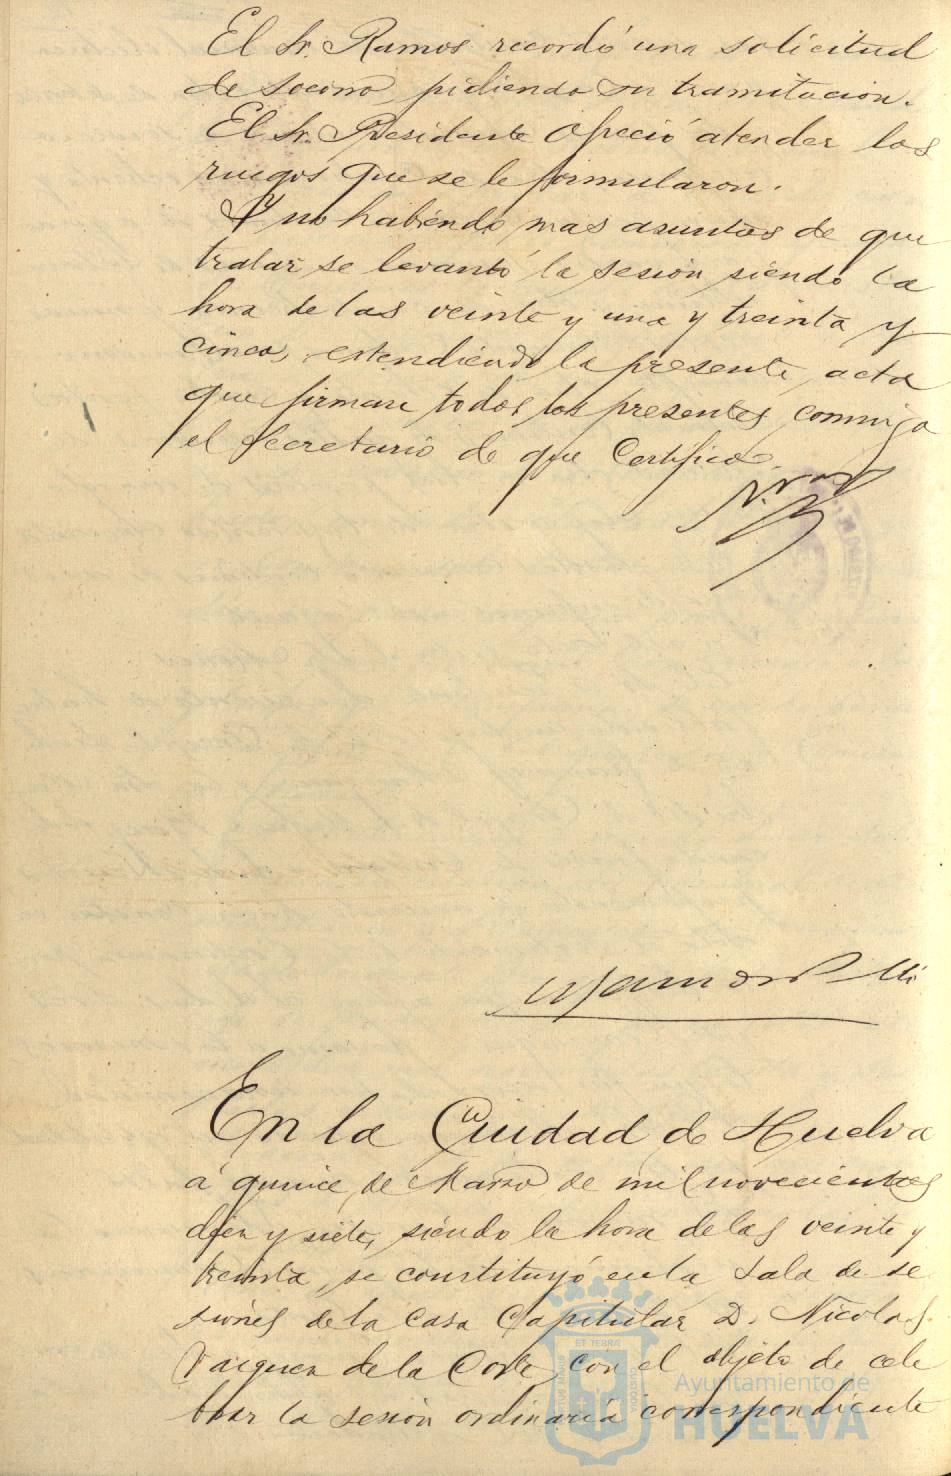 El Sr. Ramos recordó una solicitud
de socorro, pidiendo su tramitacion.
El Sr. Presidente ofreció atender los
ruegos que se le formularon.
Y no habiendo mas asuntos de que
tratar se levantó la sesión siendo la
hora de las veinte y una y treinta y
cinco, estendiendo la presente acta
que firman todos los presentes conmigo
el Secretario de que Certifico.
En la Ciudad de Huelva
á quince de Marzo de mil novecientos
diez y siete, siendo la hora de las veinte y
treinta, se constituyó en la Sala de se
siones de la Casa Capitular D. Nicolas
Vazquez de la Corte, con el objeto de cele
brar la sesión ordinaria correspondiente
Ayuntamiento de
HUELVA